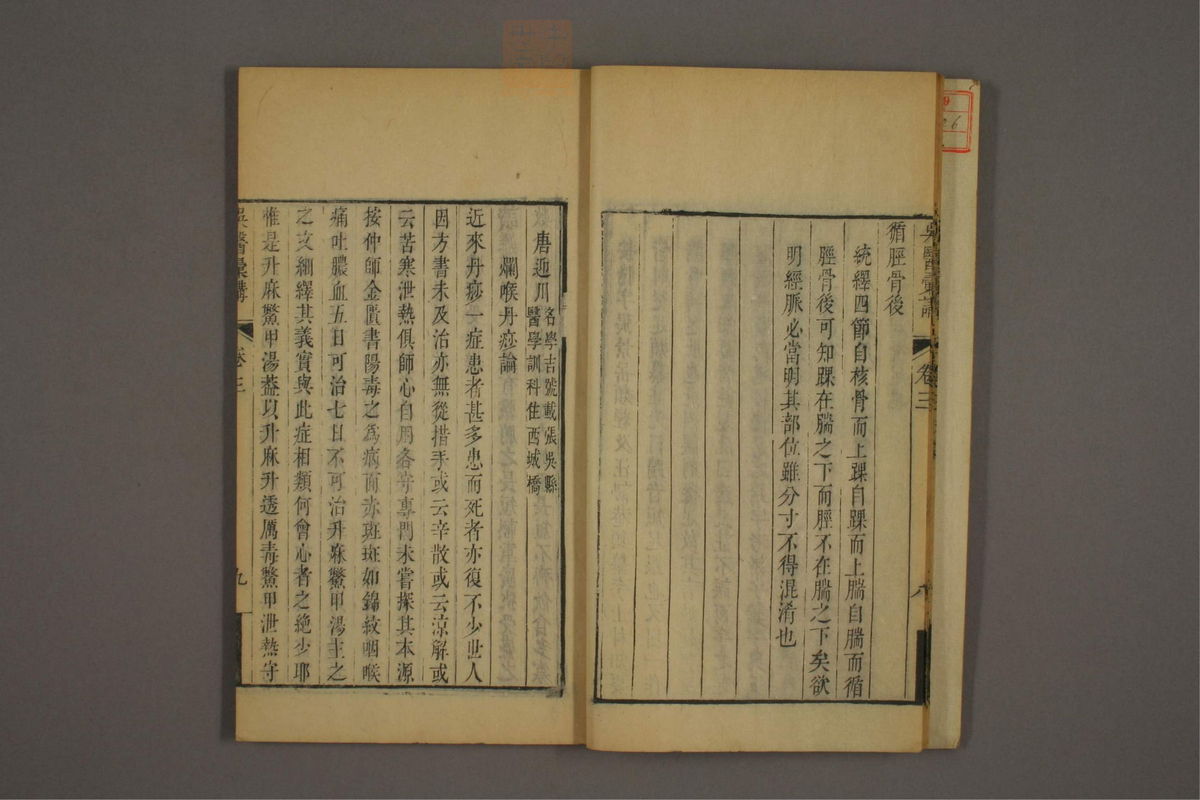 吳醫彙講
卷三
循脛骨後
統繹四節自核骨而上踝自踝而上腨自腨而循
脛骨後可知踝在腨之下而脛不在腨之下矣欲
明經脈必當明其部位雖分寸不得混淆也
唐迎川
名學吉號載張吳縣
醫學訓科住西城橋
爛喉丹痧論
近來丹痧一症患者甚多患而死者亦復不少世人
因方書未及治亦無從措手或云辛散或云涼解或
云苦寒泄熱俱師心自用各等專門未嘗探其本源
按仲師金匱書陽毒之為病面赤斑斑如錦紋咽喉
痛吐膿血五日可治七日不可治升麻鱉甲湯主之
之文細繹其義實與此症相類何會心者之絶少耶
惟是升麻鱉甲湯葢以升麻升透厲毒鱉甲泄熱守
吳醫彙講
卷三
九